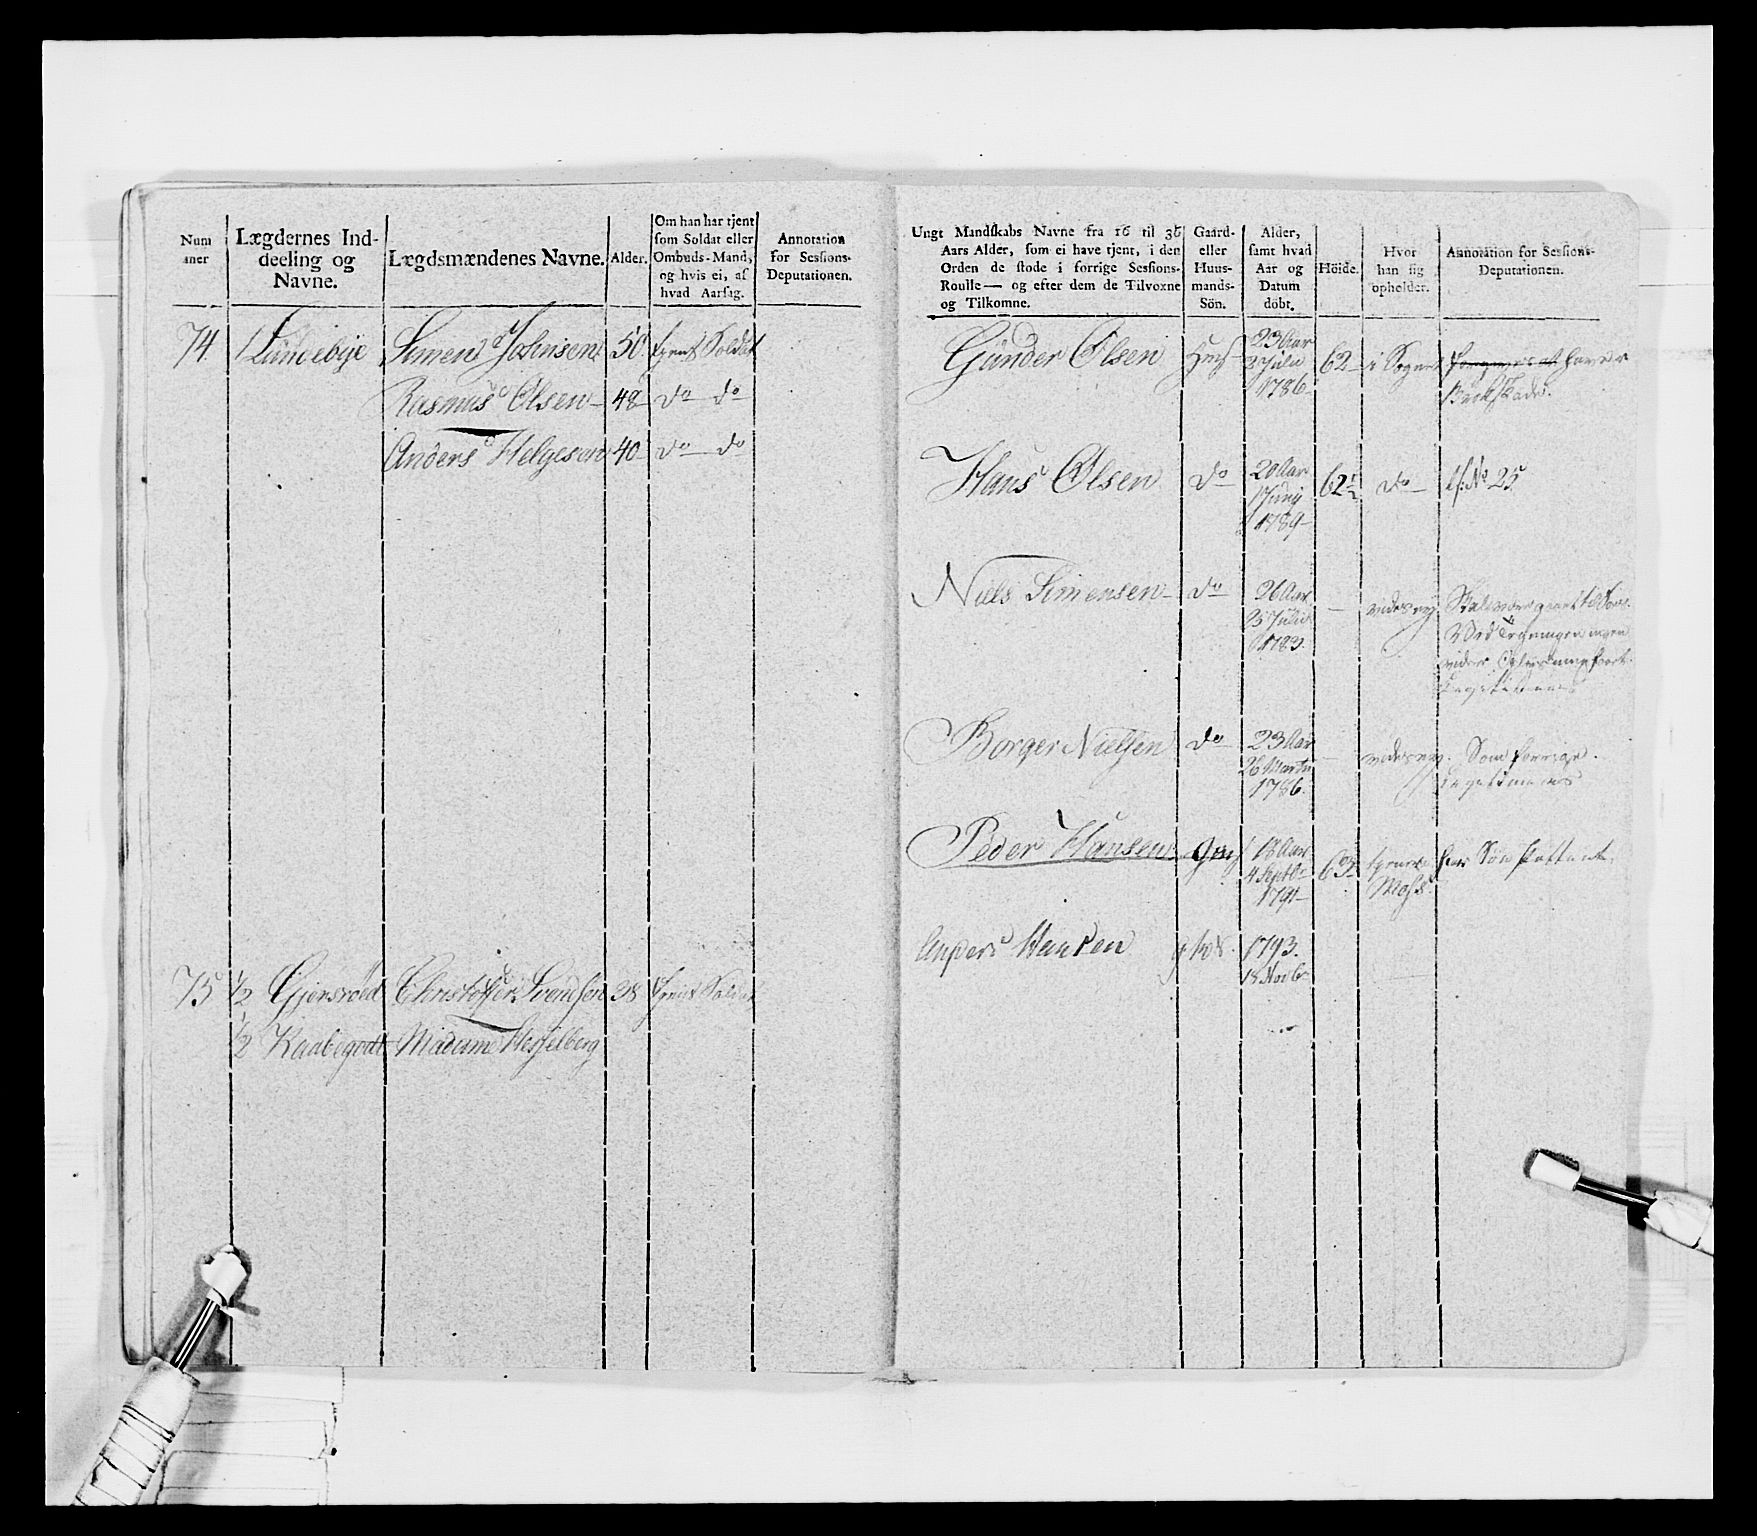 Num
mer
Lægdernes Ind-
deeling og
Navne.
Lægdsmændenes Navne.
Alder.
Om han har tjent
som Soldat eller
Ombuds-Mand,
og hvis ei, af
hvad Aarsag.
Annotation
for Sessions-
Deputationen.
74
1 Lundebye
Simen Johnsen
50
tjent Soldat
Rasmus Olsen
48
do do
Anders Helgesen
40
do do
75
1/2 Gjersröed
Christoffer Svendsen
38
tjent Soldat
1/2
Madame Hesselberg
Ungt Mandskabs Navne fra 16 til 36
Aars Alder, som ei have tjent, i den
Orden de stode i forrige Sessions-
Roulle — og efter dem de Tilvoxne
og Tilkomne.
Gaard-
eller
Huus-
mands-
Sön.
Alder,
samt hvad
Aar og
Datum
döbt.
Höide.
Hvor
han sig
opholder.
Annotation for Sessions-
Deputationen.
Gunder Olsen
23 Aar
Julii
1786
62
i Sognet
haver
Brokskade.
Hans Olsen
do
20 Aar
Junij
1789
62 1/2
do
No 25
Niels Simensen
do
26 Aar
Julii
1783.
vides ej
Borger Nielsen
do
23 Aar
26 Martii
1786.
vides ej.
Som forrige.
Peder Hansen
18 Aar
4 Septbr
1791
63
tjener
Moss
Anders Hansen
1793.
18 Novbr